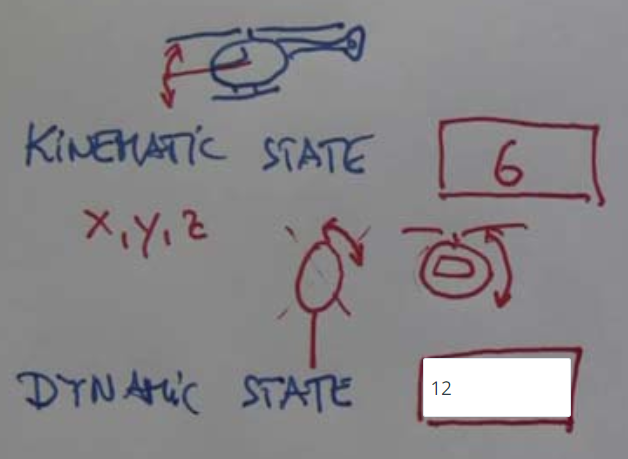 KINEMATIC STATE 6
X, Y, Z
DYNAMIC STATE 12